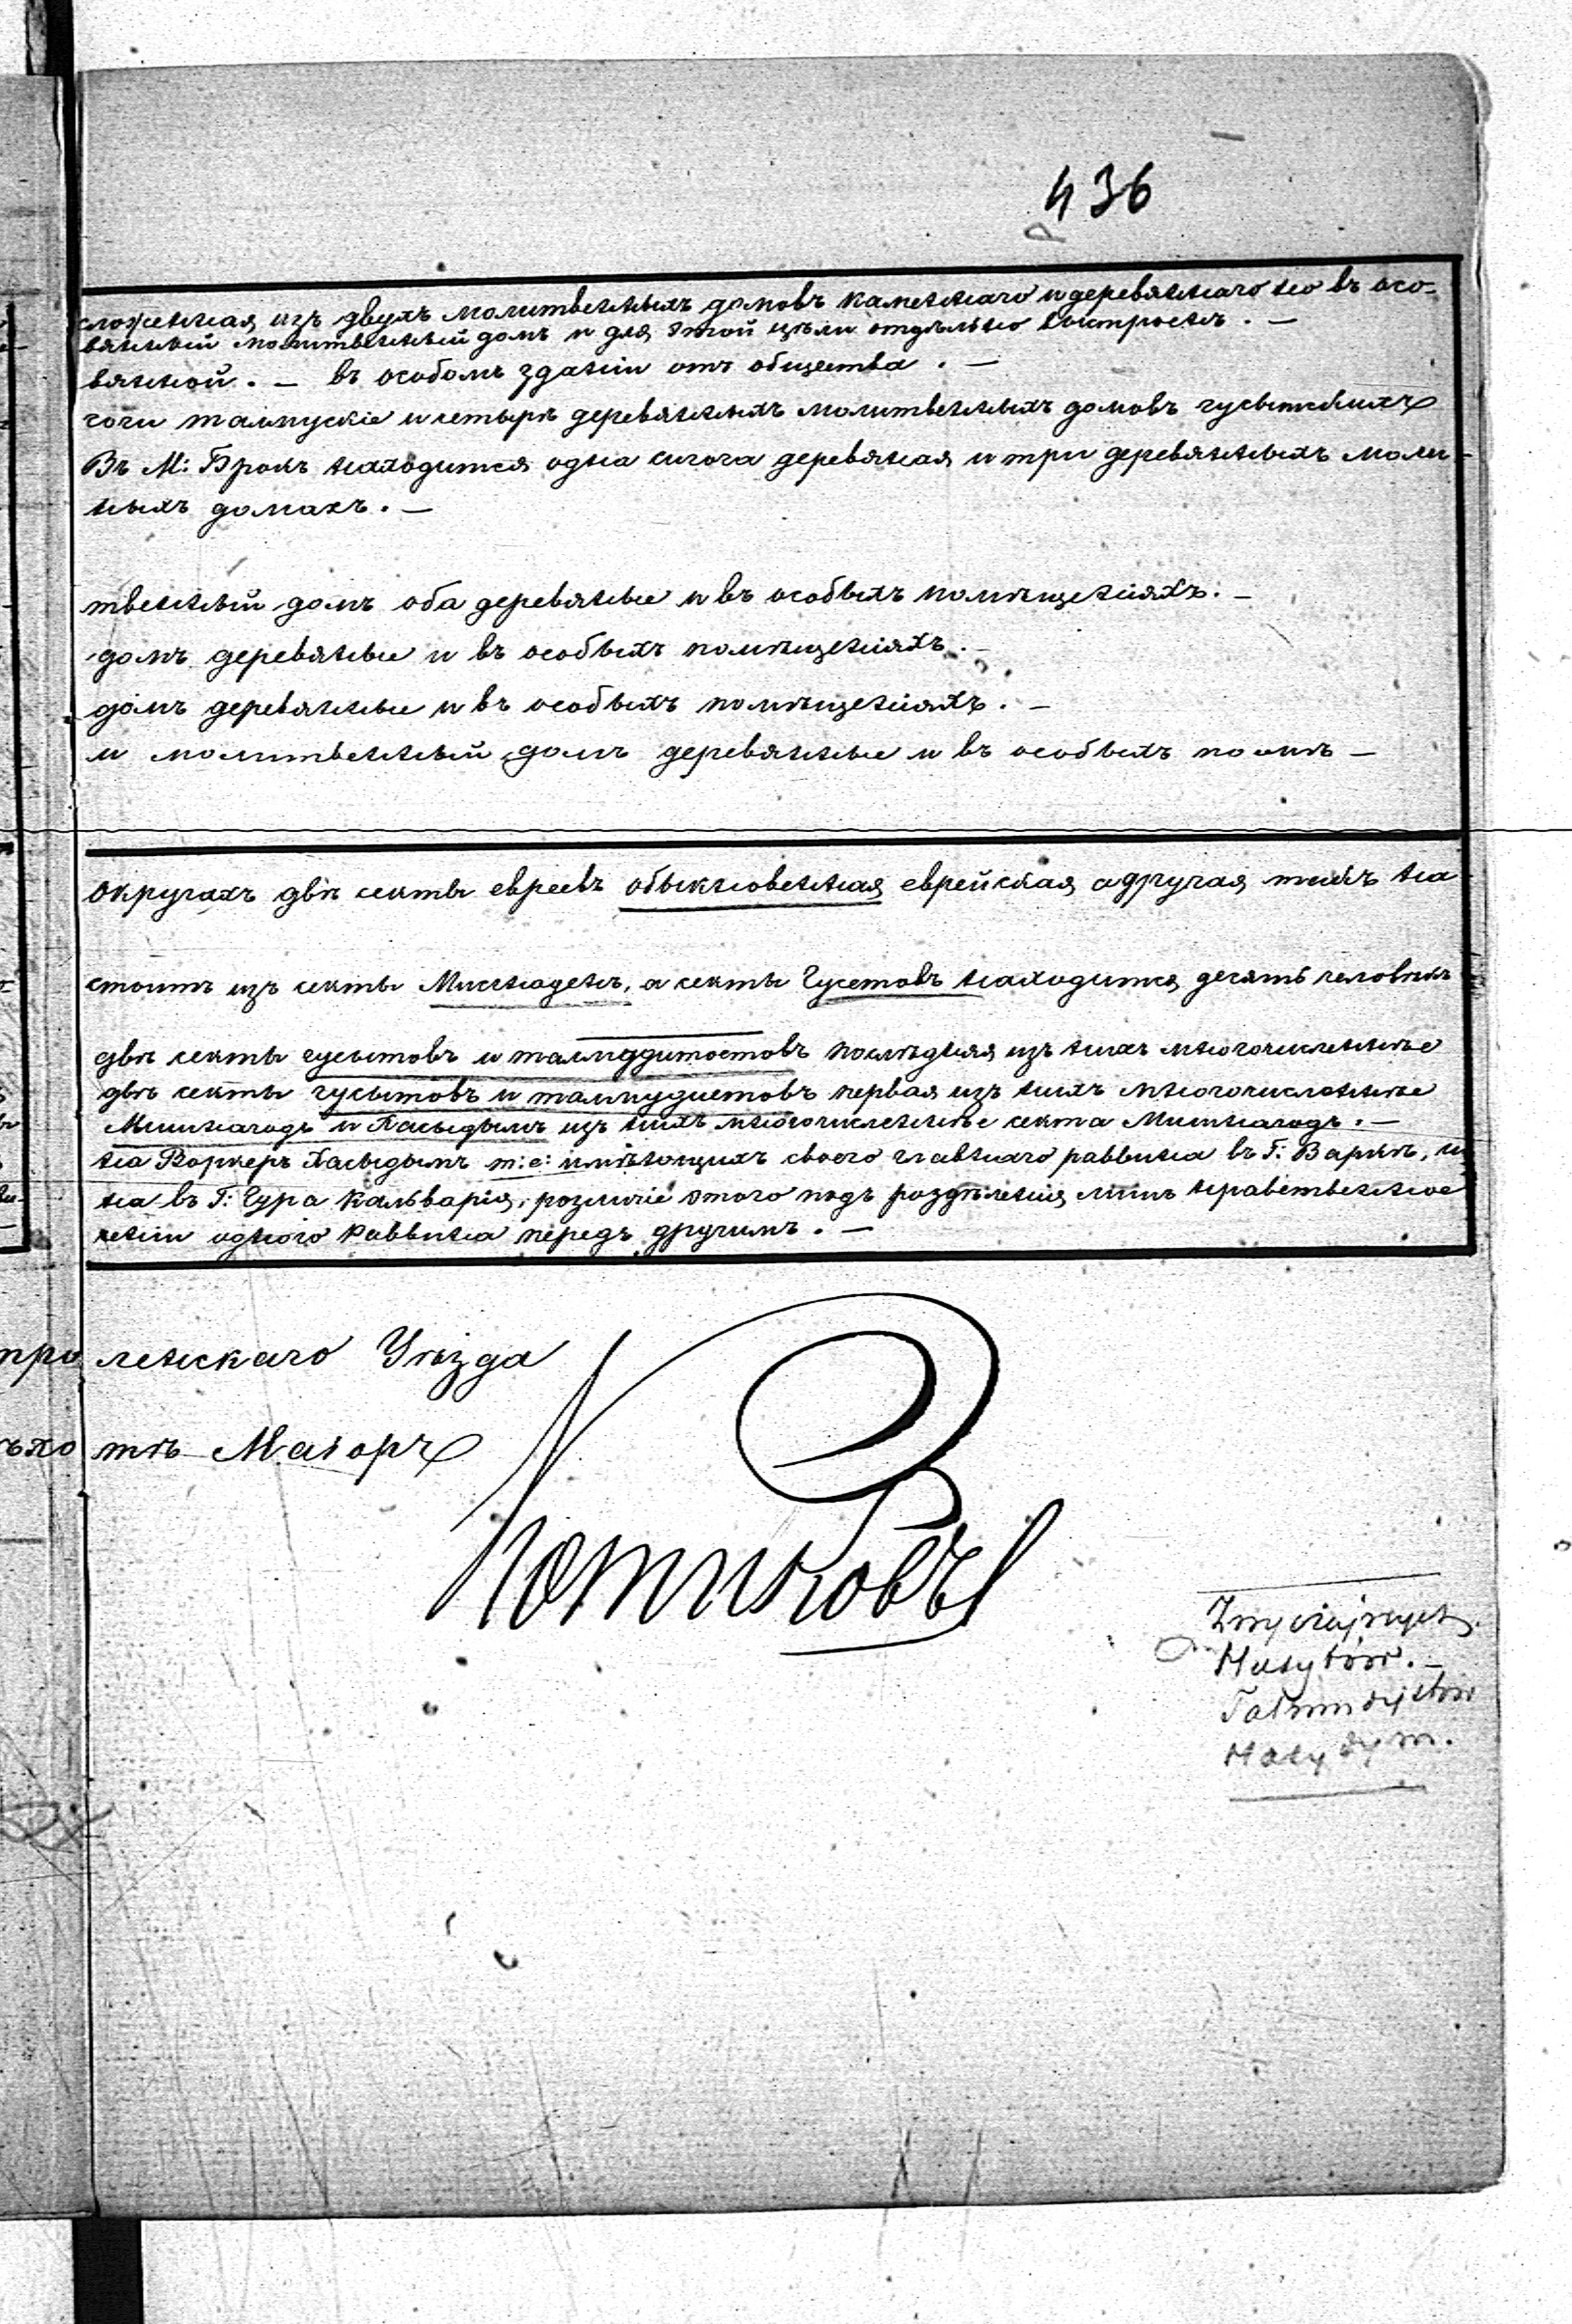 436
сложенная изъ двухъ молитвенныхъ домовъ каменнаго и деревяннаго но въ осо-
вянный молитвенный домъ и для этой цѣли отдѣльно выстроенъ. —
вянной. — въ особомъ зданіи отъ общества. —
гоги талмускіе и четыре деревянныхъ молитвенныхъ домовъ гусытскихъ
Въ М: Брокъ находится одна сигога деревяная и три деревянныхъ моли-
ныхъ домахъ. —
твенный домъ оба деревяные и въ особыхъ помѣщеніяхъ. —
домъ деревяные и въ особыхъ помѣщеніяхъ. —
домъ деревянные и въ особыхъ помѣщеніяхъ. —
и молитвенный домъ деревянные и въ особыхъ помѣ —
округахъ двѣ секты евреевъ обыкновенная еврейская а другая такъ на
стоитъ изъ секты Миснагденъ, а секты Гусетовъ находится десять человѣкъ
двѣ секты гусытовъ и послѣдняя изъ нихъ многочисленнѣе
двѣ секты гусытовъ и талмудистовъ первая изъ нихъ многочисленнѣе
Мишнагодъ и Хасыдымъ изъ нихъ многочисленнѣе секта Мишнагодъ. —
на Воркеръ Хасыдымъ т: е: имѣющихъ своего главнаго раввина въ Г: Варкѣ, и
на въ Г: Гура Кальварія, розличіе этого подъ роздѣленія лишь нравственное
ченіи одного Раввина передъ другимъ. —
про ленскаго Уѣзда
ѣхо тѣ Маіоръ
Котиковъ
Zwyczajnych
Husytów. —
Talmudystów
Hasydym.